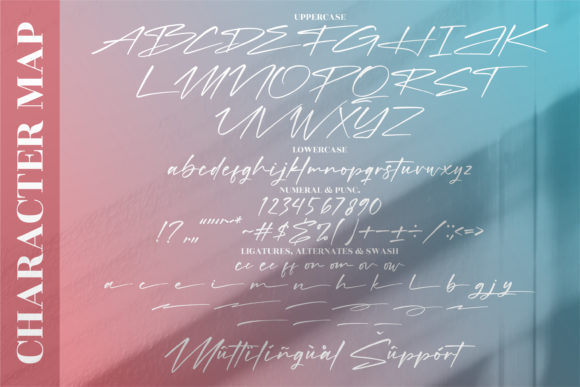 CHARACTER MAP
UPPERCASE
ABCDEFGHIJK
LMNOPQRST
UVWXYZ
LOWERCASE
abcdefghijklmnopqrstuvwxyz
NUMERAL & PUNC.
1234567890
LIGATURES, ALTERNATES & SWASH
cc ee ff on om ov ow
a c e i m n h k l b g j y
Müttïlïñgùål Šûppórt